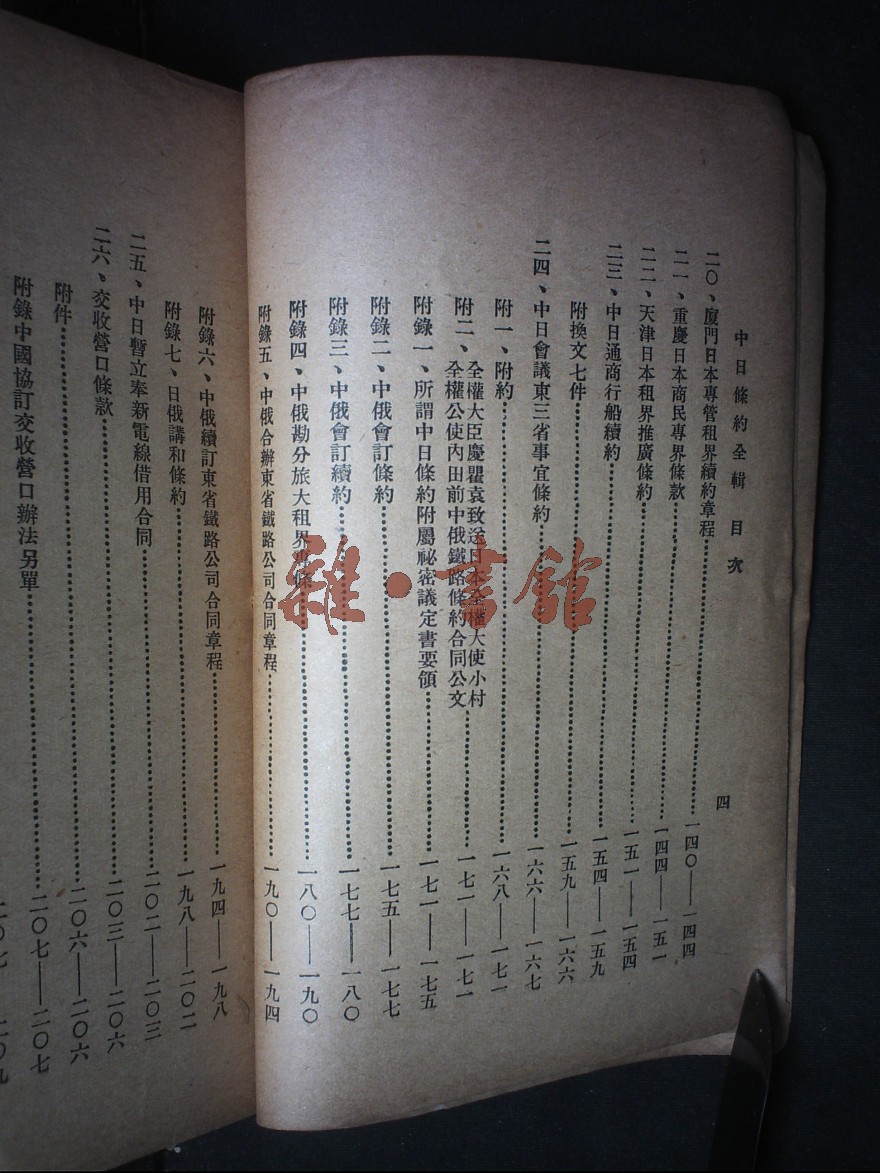 中日條約全輯 目次 四
二〇、廈門日本專管租界續約章程……一四〇——一四四
二一、重慶日本商民專界條款……一四四——一五一
二二、天津日本租界推廣條約……一五一——一五四
二三、中日通商行船續約……一五四——一五九
附換文七件……一五九——一六六
二四、中日會議東三省事宜條約……一六六——一六七
附一、附約……一六八——一七一
附二、全權大臣慶瞿袁致送日本全權大使小村
全權公使內田前中俄鐵路條約合同公文……一七一——一七一
附錄一、所謂中日條約附屬祕密議定書要領……一七一——一七五
附錄二、中俄會訂條約……一七五——一七七
附錄三、中俄會訂續約……一七七——一八〇
附錄四、中俄勘分旅大租界專條……一八〇——一九〇
附錄五、中俄合辦東省鐵路公司合同章程……一九〇——一九四
附錄六、中俄續訂東省鐵路公司合同章程……一九四——一九八
附錄七、日俄講和條約……一九八——二〇二
二五、中日暫立奉新電線借用合同……二〇二——二〇三
二六、交收營口條款……二〇三——二〇六
附件……二〇六——二〇六
附錄中國協訂交收營口辦法另單……二〇七——二〇七
雜·書館